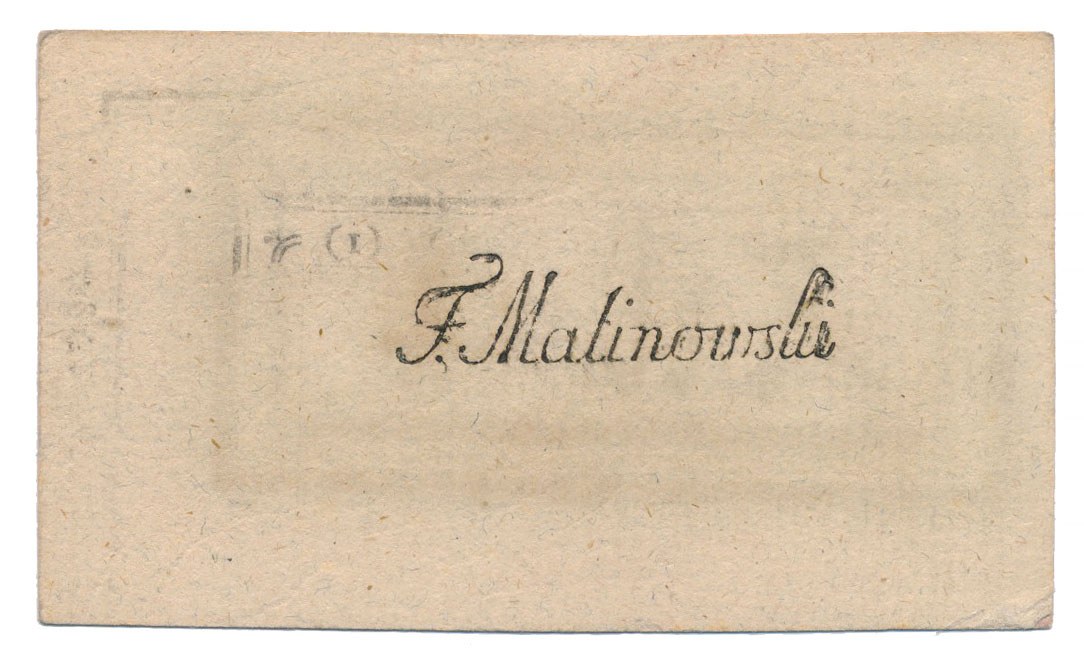 (1) *
F. Malinowski